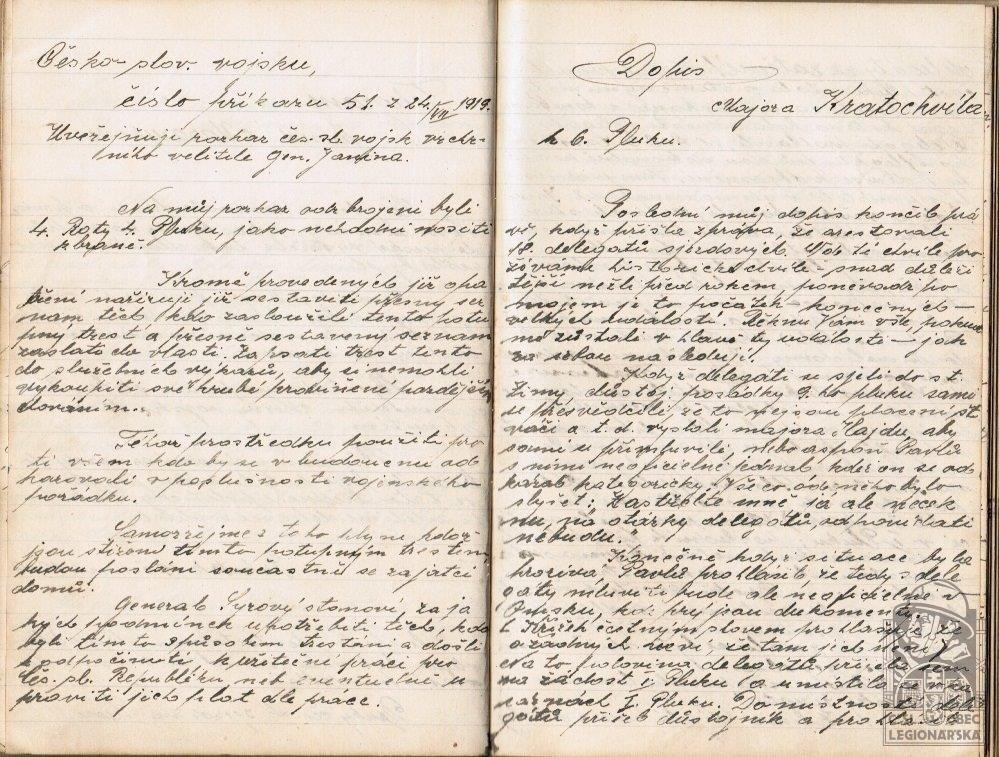 Česko-slov. vojsku,
číslo příkazu 51. z 24./VII 1919.
Uveřejňuji rozkaz čes. sl. vojsk vrchr-
ního velitele Gen. Janina.
Na můj rozkaz odzbrojeni byli
4. Roty 4. Pluku, jako nehodni nositi
zbraně.
Kromě provedených již opa
tření nařizuji již sestaviti přesný sez
nam těch, kdo zasloužili tento potu
pný trest a přesně sestavený seznam
zaslati do vlasti. Zapsati trest tento
do služebních výkazů, aby si nemohli
vykoupiti své hrubé provinění pozdějším
.
Téhož prostředku použíti pro
ti všem kdo by se v budoucnu od
važovali v poslušnosti vojenského
pořádku.
Samozřejmě z toho plyne, kdož
jsou stiženi tímto potupným trestem,
budou posláni současně se zajatci
domů.
General Syrový stanoví, za ja
kých podmínek upotřebiti těch, kdo
byli tímto způsobem trestáni a došli
k odpočinuti, k užitečné práci pro
čes. sl. Republiku, neb eventuelně u
praviti jich plat dle práce.
Dopis
Majora Kratochvila
k 6. Pluku.
Poslední můj dopis končil prá
vě, když přišla zpráva, že arestovali
18. delegatů sjezdových. Od té chvíle pro
žíváme historické chvíle - snad důleži
tější nežli před rokem, poněvadž po
mojem je to počátek - konečných -
velkých událostí. Řeknu Vám vše, pokud
mě zůstali v hlavě ty udalosti - jak
za sebou nasledují.
Když delegati se sjeli do st.
Zimy, důstoj. posádky 9. ho pluku sami
se přesvědčili že to nejsou placení št
váči a t. d. vyslali majora Hajdu, aby
soudu přimluvili, nebo aspoň Pavlů
s nimi neoficielně jednal, kdež on se od
kázal kategoricky. Vše co od něho bylo
slyšet: Zastřelte mně já ale neček
nu, na otázky delegátů, odpovídati
nebudu.
Konečně když situace byla
hrozivá, Pavlů prohlásil, že tedy s dele
gaty mluviti bude ale neoficielně v
Irkutsku, kde prý jsou dokumenty
čestným slovem prohlásil, že
o žádných neví že tam jich není.
Na to polovina delegatů přijela sem
na žádost 1. Pluku a umístila se v ka
sarnách 1. Pluku. Do místnosti dele
gátů přišel důstojník a prohlásil
ČSL. OBEC
LEGIONÁŘSKÁ